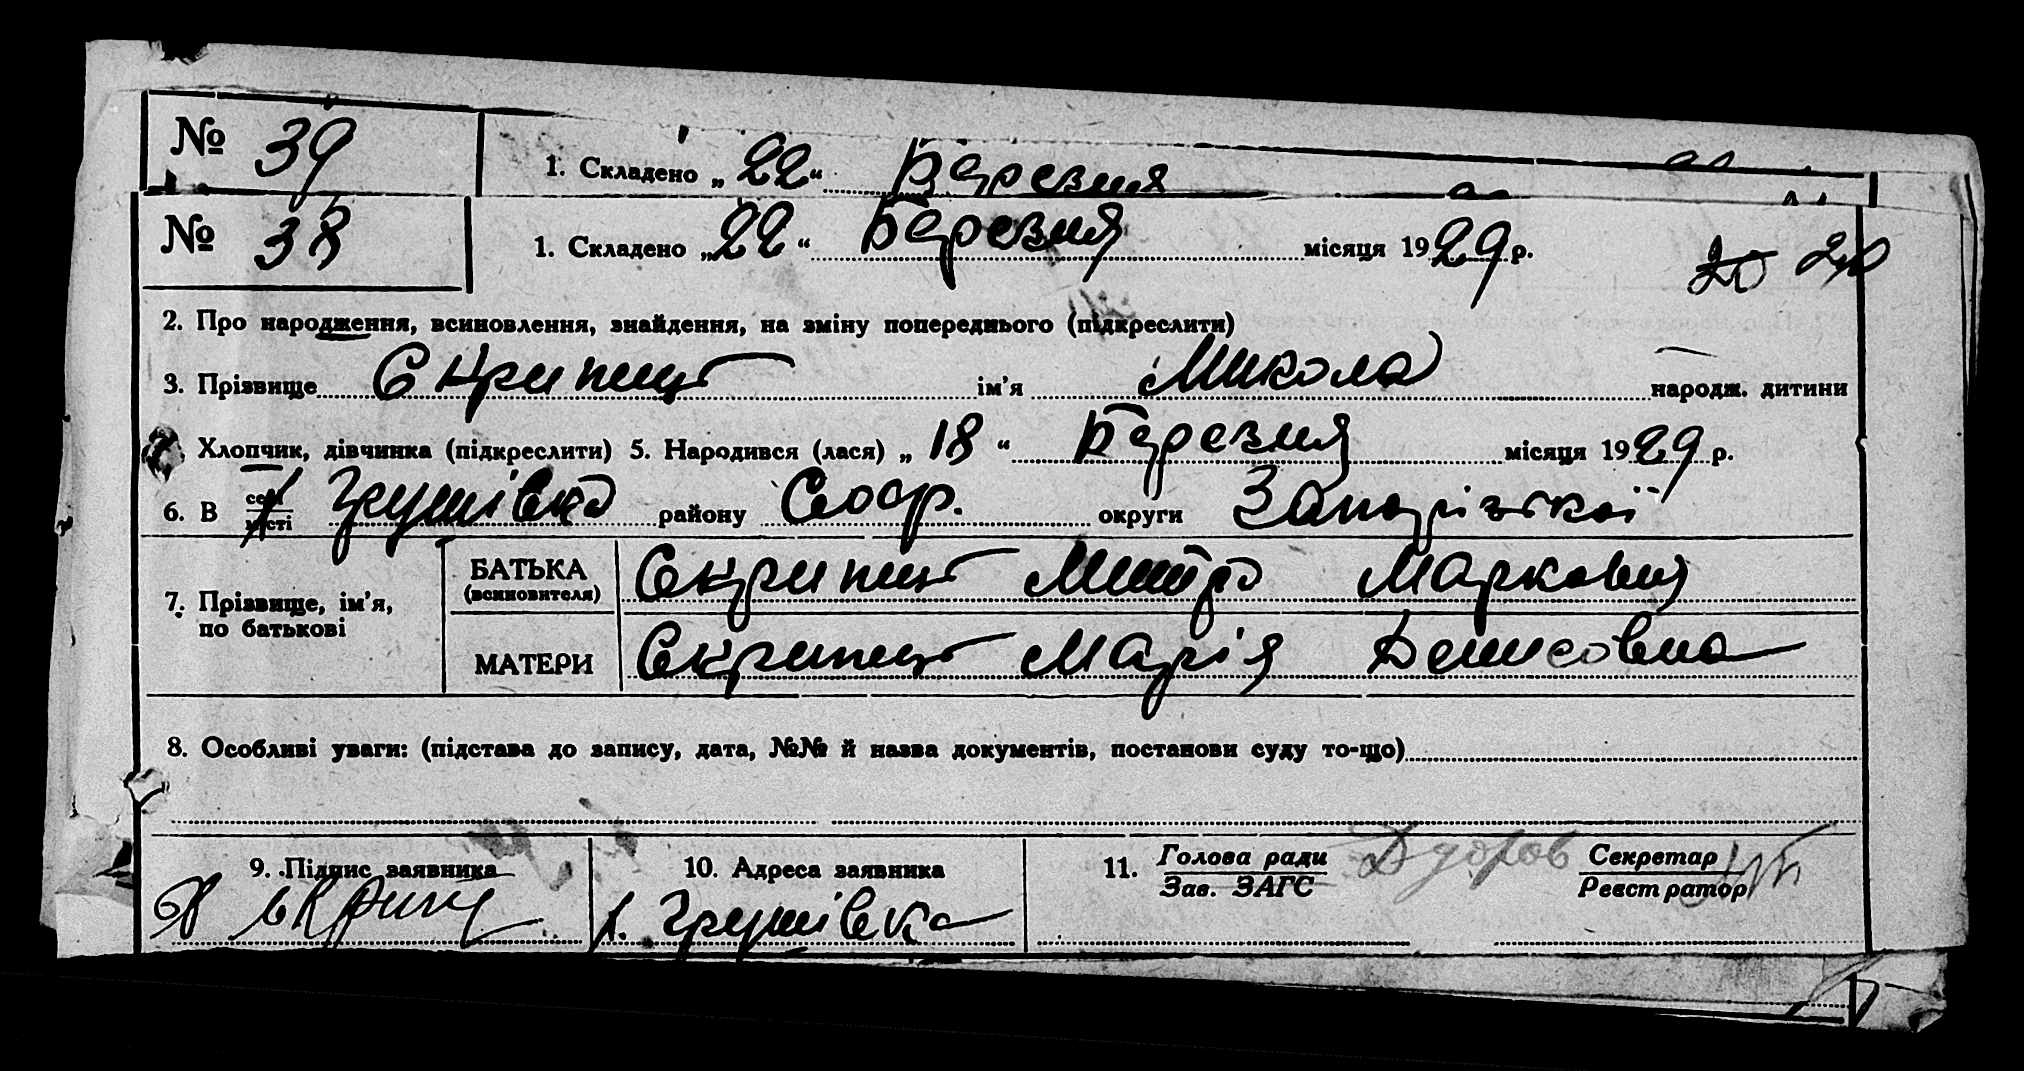 № 39
1. Складено „ 22 “ Березня
№ 38
1. Складено „ 22 “ Березня місяця 1929 р.
2. Про народження, всиновлення, знайдення, на зміну попереднього (підкреслити)
3. Прізвище Скрипец ім'я Микола народж. дитини
Хлопчик, дівчинка (підкреслити) 5. Народився (лася) „ 18 “ Березня місяця 1929 р.
6. В селі місті Грушівка району округи Запорізької
7. Прізвище, ім'я, по батькові
БАТЬКА (всиновителя) Скрипец Митро Маркович
МАТЕРИ Скрипец Марія Денисовна
8. Особливі уваги: (підстава до запису, дата, №№ й назва документів, постанови суду то-що)
9. Підпис заявника
10. Адреса заявника
Грушівка
11. Голова ради
Зав. ЗАГС
Секретар
Реєстратор